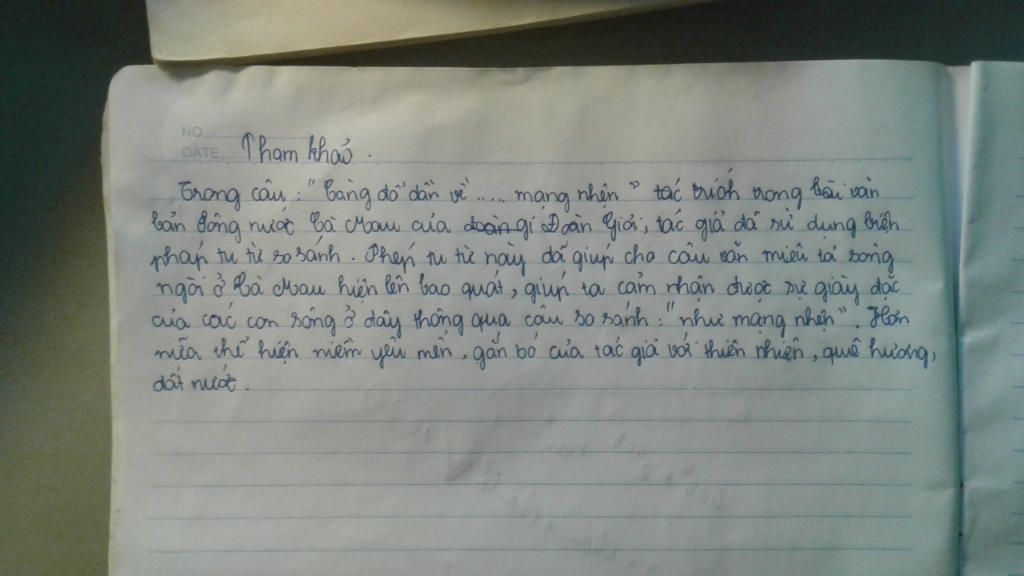 NO
DATE
Tham khảo.
Trong câu: "Càng đổ dần về ..... mạng nhện" tác trích trong bài văn
bản Sông nước Cà Mau của đoàn gi Đoàn Giỏi, tác giả đã sử dụng biện
pháp tu từ so sánh. Phép tu từ này đã giúp cho câu văn miêu tả sông
ngòi ở Cà Mau hiện lên bao quát, giúp ta cảm nhận được sự giày đặc
của các con sông ở đây thông qua câu so sánh: "như mạng nhện". Hơn
nữa thể hiện niềm yêu mến, gắn bó của tác giả với thiên nhiên, quê hương,
đất nước.